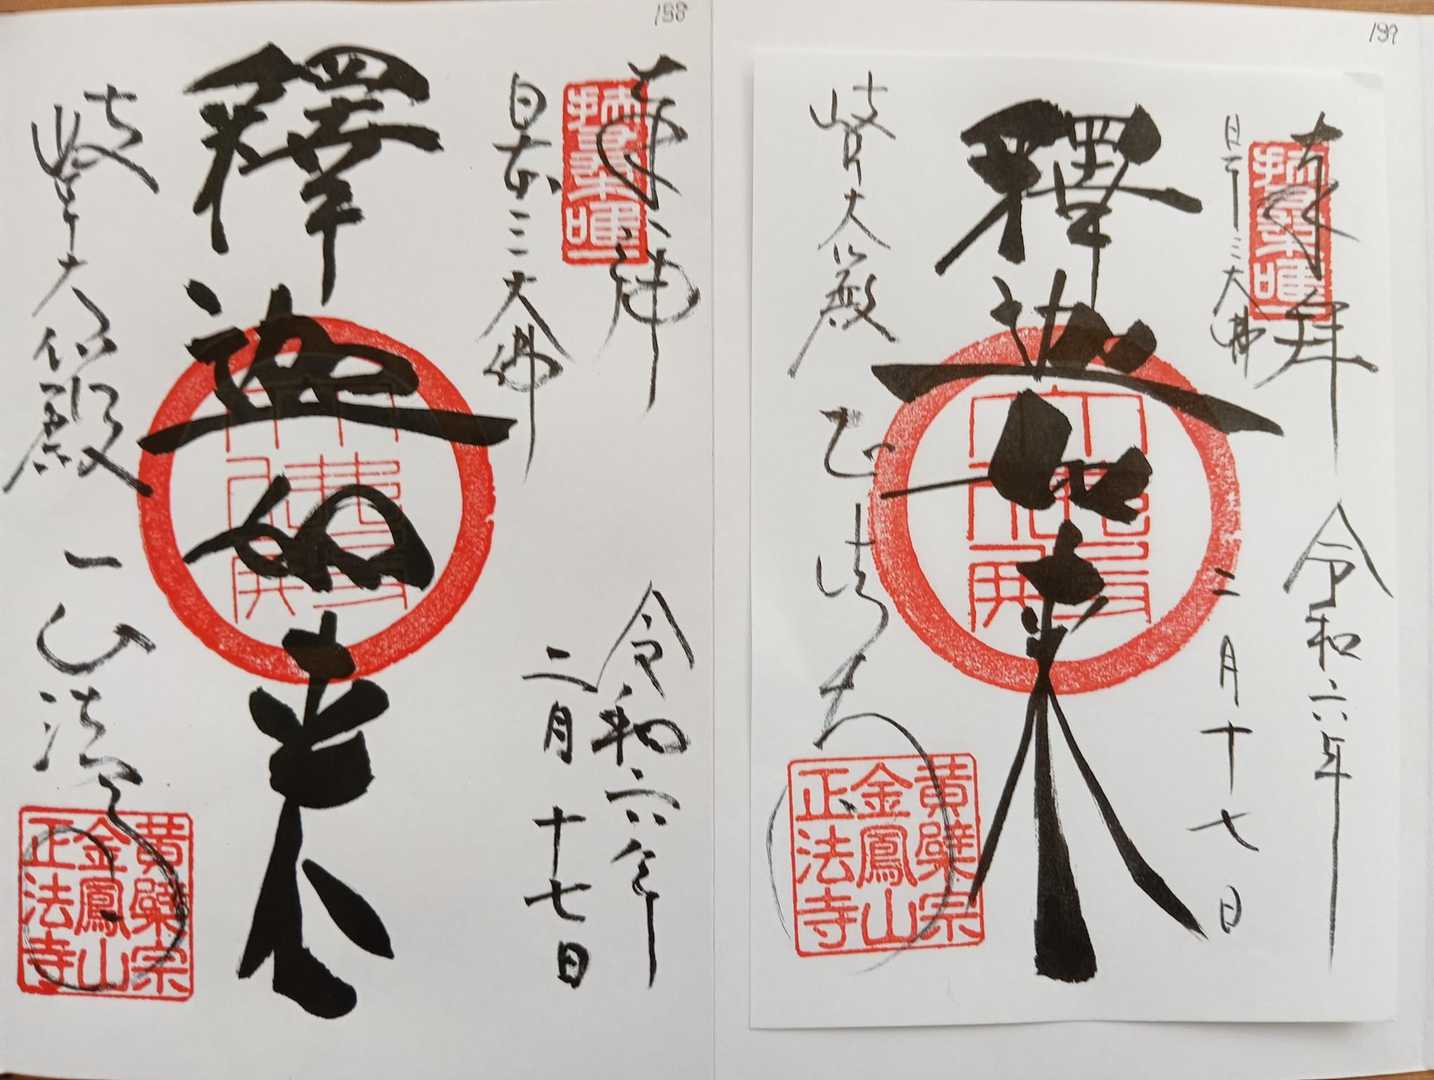 198
奉拝
日本三大佛
釋迦如来
岐阜大仏殿
令和六年
二月十七日
黄檗宗
金鳳山
正法寺
199
奉拝
日本三大佛
釋迦如来
岐阜大仏殿
正法寺
令和六年
二月十七日
黄檗宗
金鳳山
正法寺